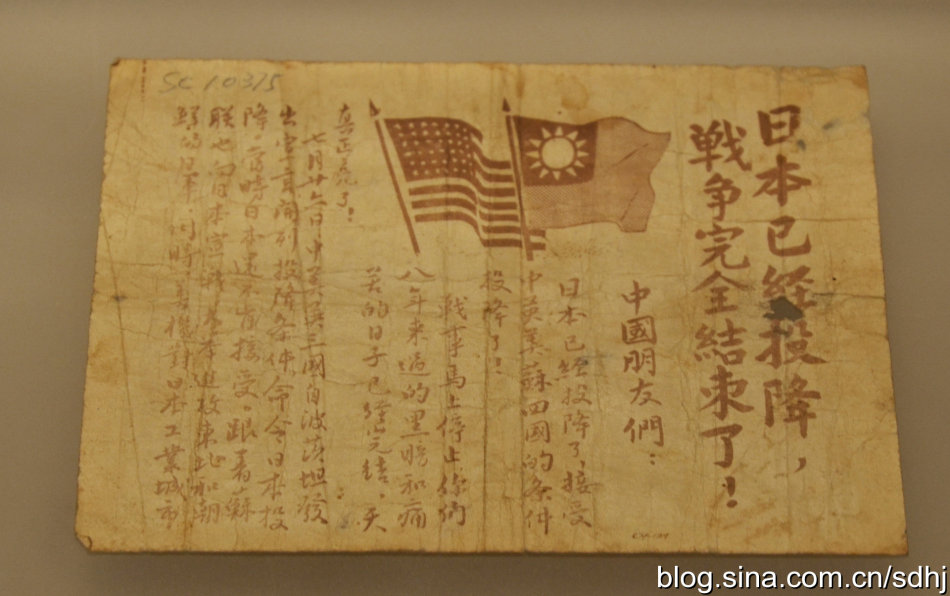 日本已经投降，
戰争完全結束了！
中國朋友們：
日本已經投降了，接受
中英美蘇四國的条件
投降了！
戰事馬上停止，你們
八年来過的黑暗和痛
苦的日子已經完結，天
真正亮了！
七月廿六日中美英三國自波茨坦發
出宣言開列投降条件命令日本投
降，當時日本還不肯接受。跟着蘇
联也向日本宣战，進攻東北和朝
鮮的日軍，同時，美機對日本工業城市
SC 10315
blog.sina.com.cn/sdhj